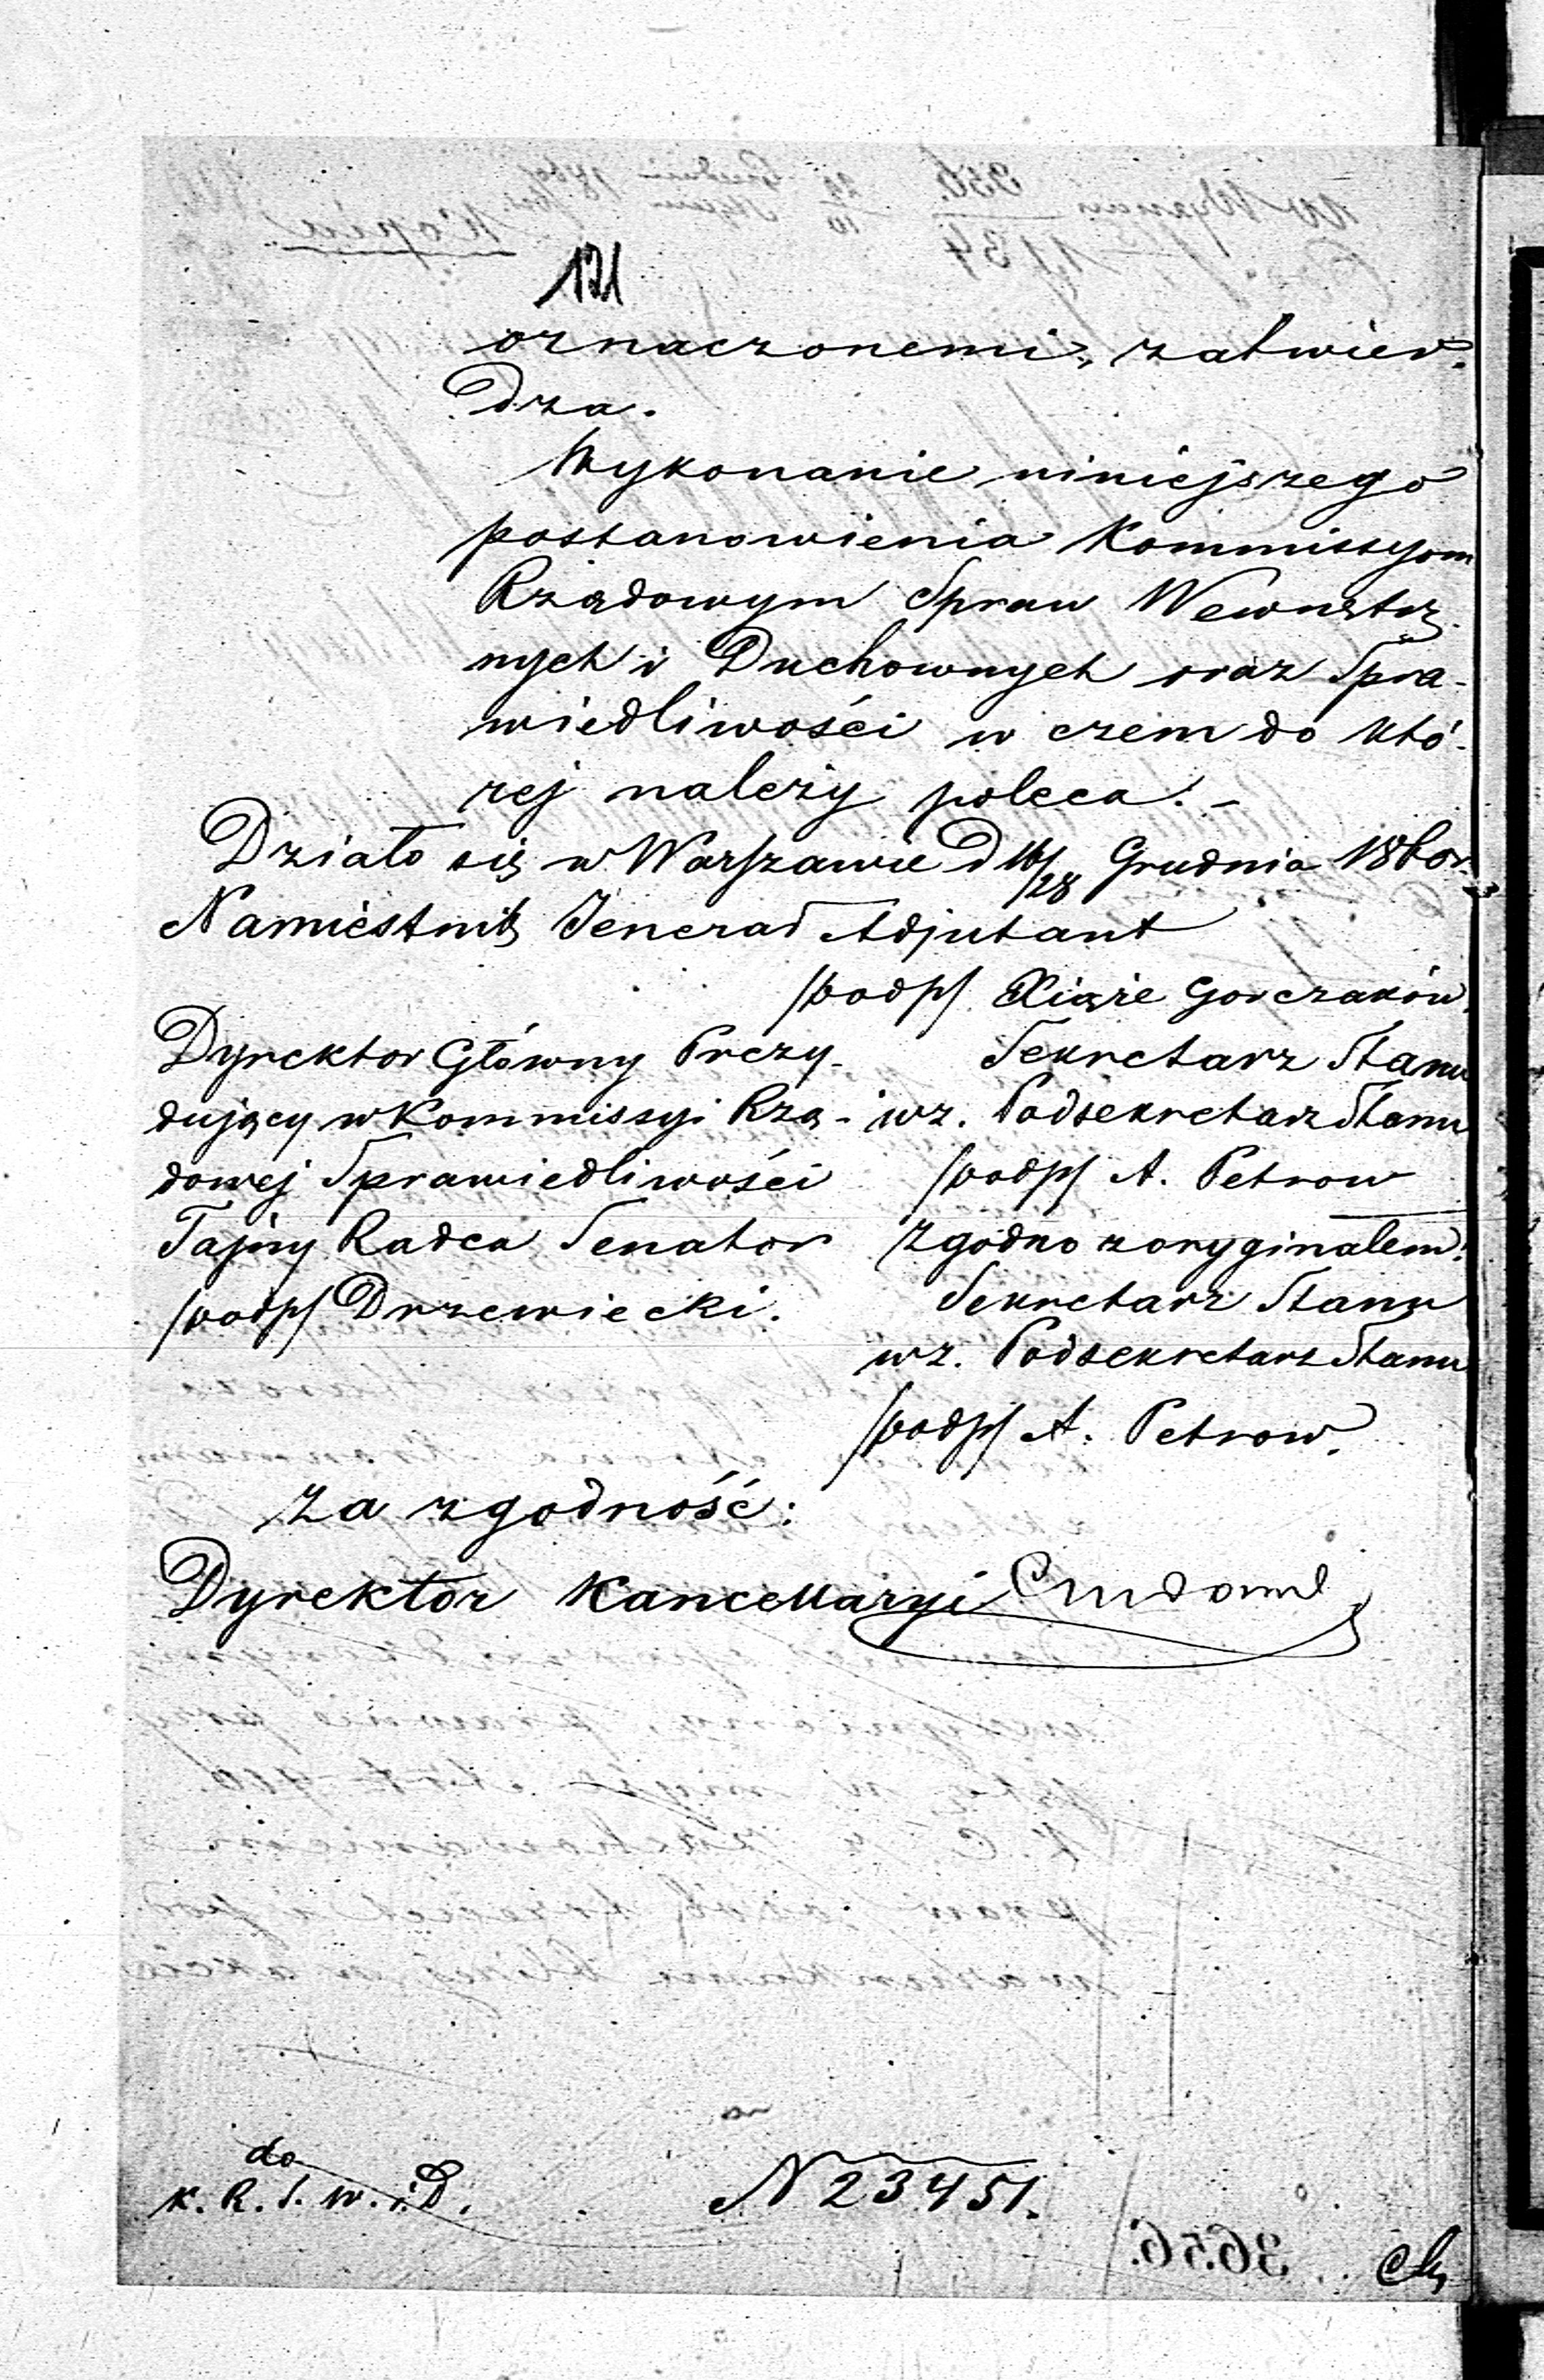 121
oznaczonemi, zatwier-
dza.
Wykonanie niniejszego
postanowienia Kommissyom
Rządowym Spraw Wewnętrz-
nych i Duchownych oraz Spra-
wiedliwości w czem do któ-
rej należy poleca. -
Działo się w Warszawie d 16/28 Grudnia 1860 r.
Namiestnik Jenerał Adjutant
/podp/ Xiąże Gorczaków
Dyrektor Główny Prezy-
dujący w Kommissyi Rzą-
dowej Sprawiedliwości
Tajny Radca Senator
/podp/ Drzewiecki.
Sekretarz Stanu
wz. Podsekretarz Stanu
/podp/ A. Petrow
Zgodno z oryginałem:
Sekretarz Stanu
wz. Podsekretarz Stanu
/podp/ A. Petrow.
Za zgodność:
Dyrektor Kancellaryi
do
K. R. S. W. i D.
N 23451.